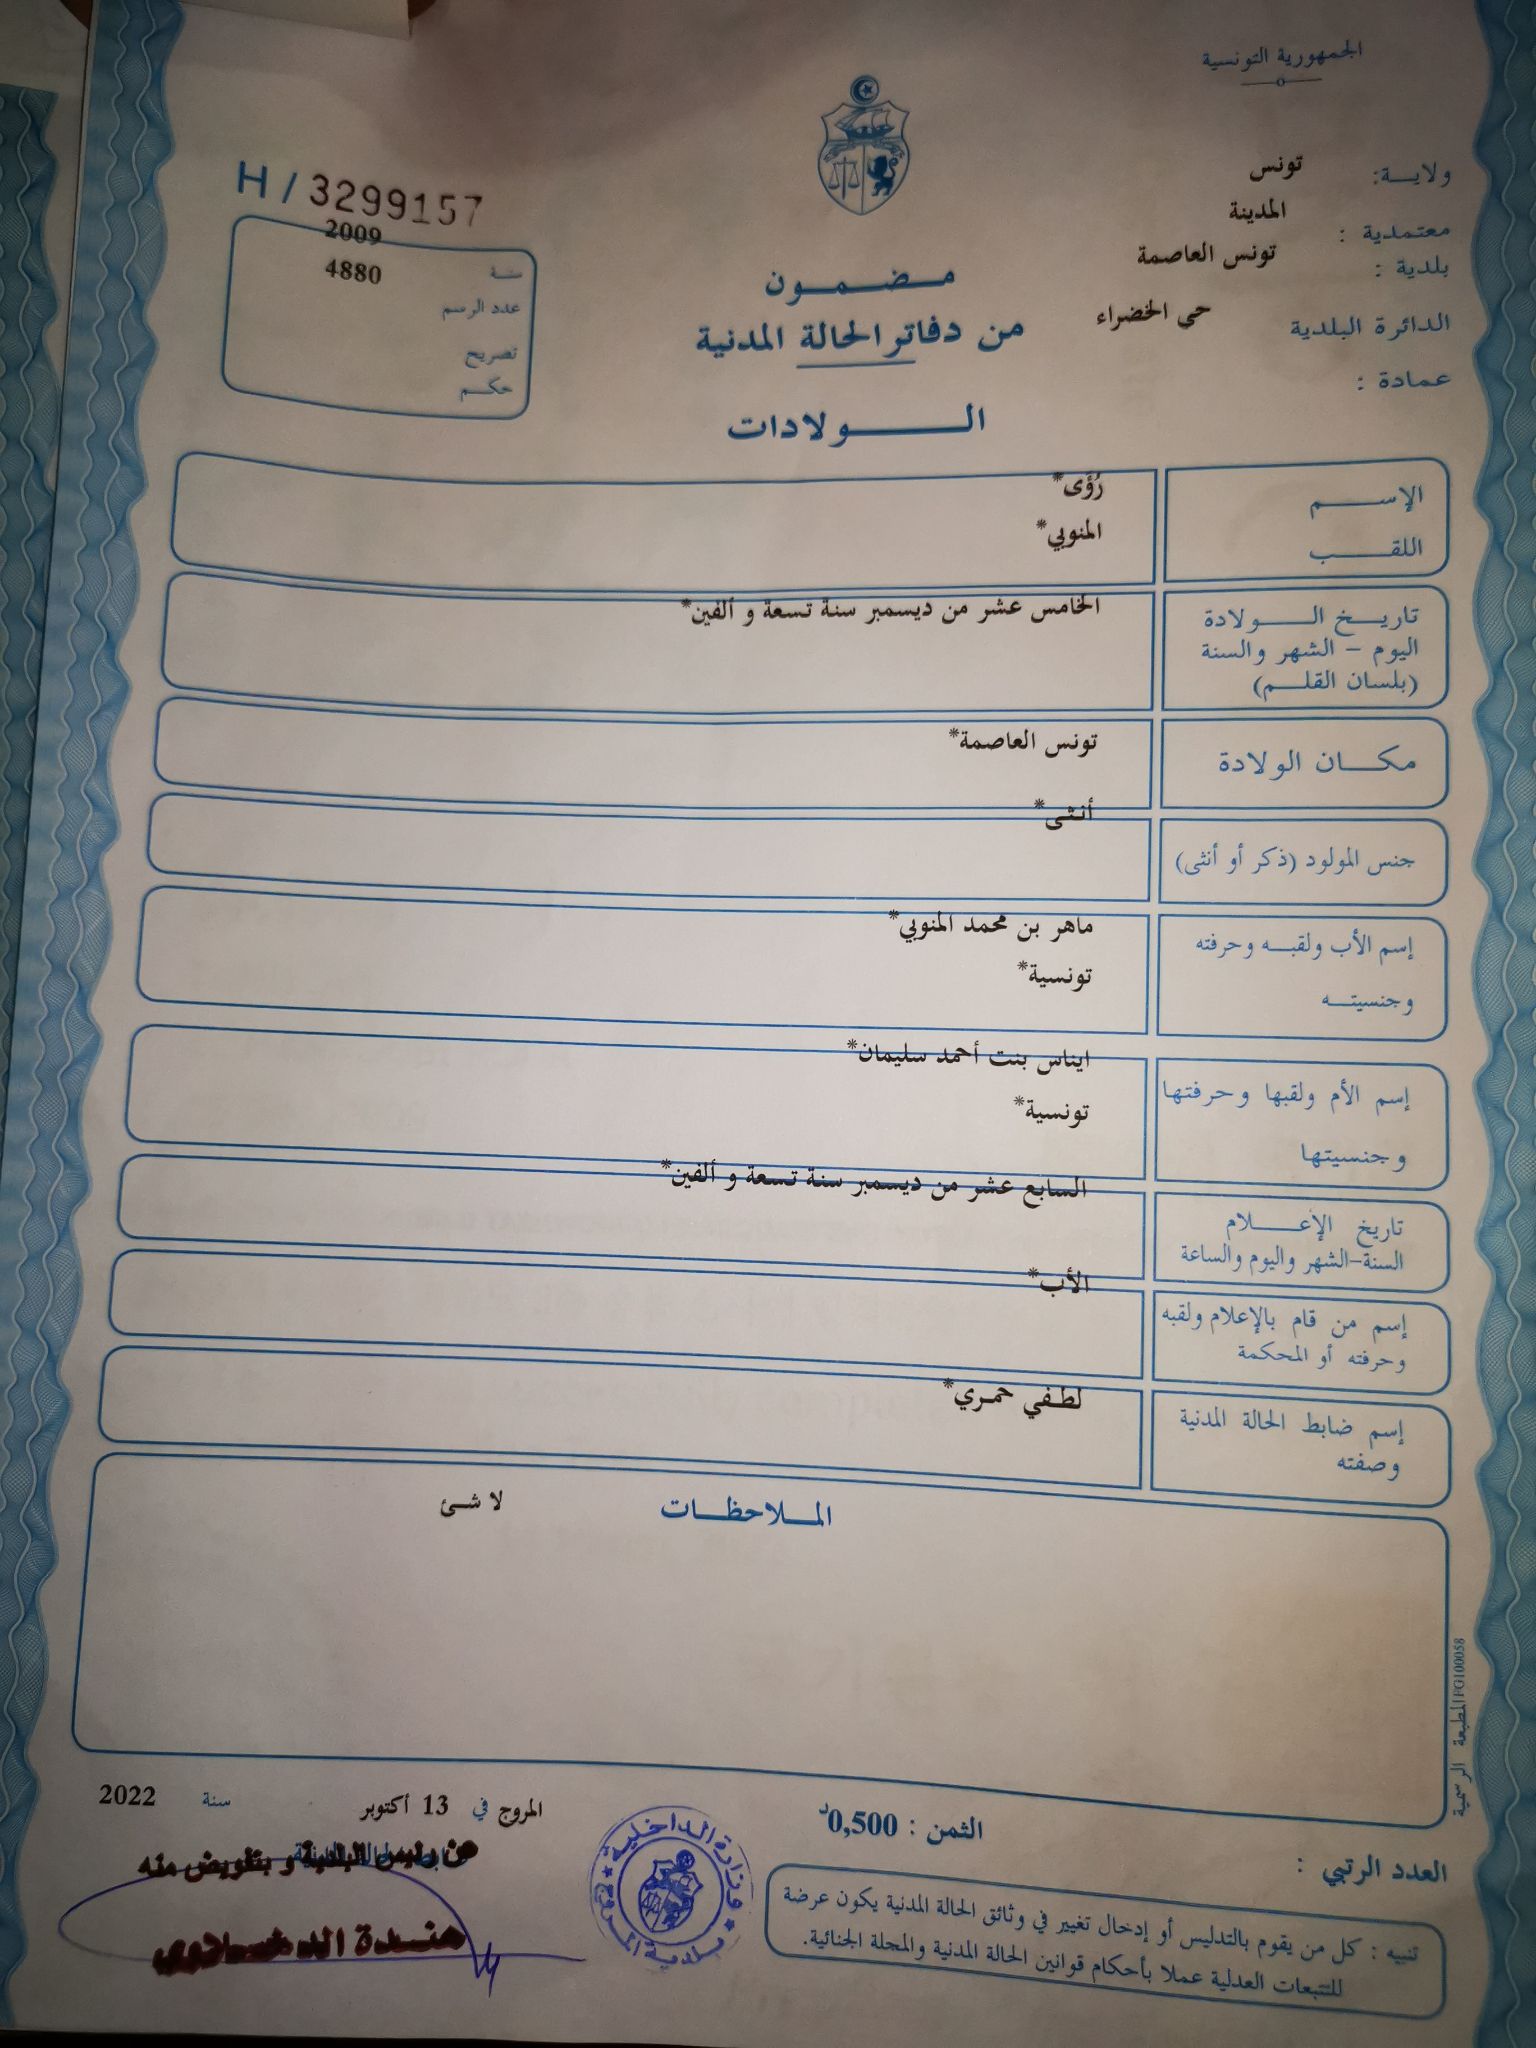 الجمهورية التونسية
ولايـــة: تونس
معتمدية : المدينة
بلدية : تونس العاصمة
الدائرة البلدية حي الخضراء
عمادة :
H / 3299157
سنة 2009
عدد الرسم 4880
تصريح
حكـــم
مـــضـــمـــون
من دفاتر الحالة المدنية
الـــــولادات
الإســـــم رُؤَى*
اللقـــــب المنوبي*
تاريـــخ الـــولادة الخامس عشر من ديسمبر سنة تسعة و ألفين*
اليوم – الشهر والسنة
(بلسان القلـــم)
مكـــان الولادة تونس العاصمة*
جنس المولود (ذكر أو أنثى) أنثى*
إسم الأب ولقبـــه وحرفته ماهر بن محمد المنوبي*
وجنسيتـــه تونسية*
إسم الأم ولقبها وحرفتها ايناس بنت أحمد سليمان*
وجنسيتها تونسية*
تاريخ الإعـــلام السابع عشر من ديسمبر سنة تسعة و ألفين*
السنة–الشهر واليوم والساعة
إسم من قام بالإعلام ولقبه الأب*
وحرفته أو المحكمة
إسم ضابط الحالة المدنية لطفي حمري*
وصفته
المـــلاحظـــات لا شئ
المطبعة الرسمية PG100058
المروج في 13 أكتوبر سنة 2022
عن رئيس البلدية و بتفويض منه
وزارة الداخلية
بلدية المروج
الثمن : 0,500د
العدد الرتبي :
تنبيه : كل من يقوم بالتدليس أو إدخال تغيير في وثائق الحالة المدنية يكون عرضة
للتتبعات العدلية عملا بأحكام قوانين الحالة المدنية والمجلة الجنائية.